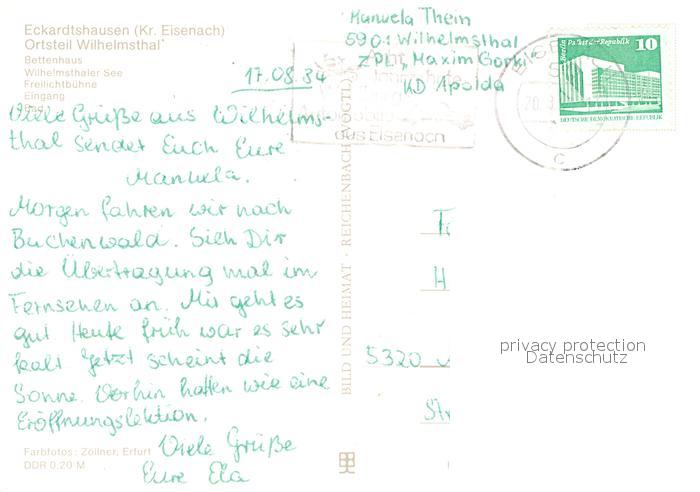 Eckardtshausen (Kr. Eisenach)
Ortsteil Wilhelmsthal
Bettenhaus
Wilhelmsthaler See
Freilichtbühne
Eingang
17.08.84
Viele Grüße aus Wilhelms-
thal sendet Euch Eure
Manuela.
Morgen fahren wir nach
Buchenwald. Sieh Dir
die Übertragung mal im
Fernsehen an. Mir geht es
gut Heute früh war es sehr
kalt Jetzt scheint die
Sonne. Vorhin hatten wir eine
Eröffnungslektion.
Viele Grüße
Eure Ela
Farbfotos: Zöllner, Erfurt
DDR 0,20 M
BILD UND HEIMAT · REICHENBACH (VOGTL)
Manuela Thein
5901 Wilhelmsthal
ZPL "Maxim Gorki"
KD Apolda
aus Eisenach
20.8
c
Berlin Palast der Republik 10
DEUTSCHE DEMOKRATISCHE REPUBLIK
H
5320
privacy protection
Datenschutz